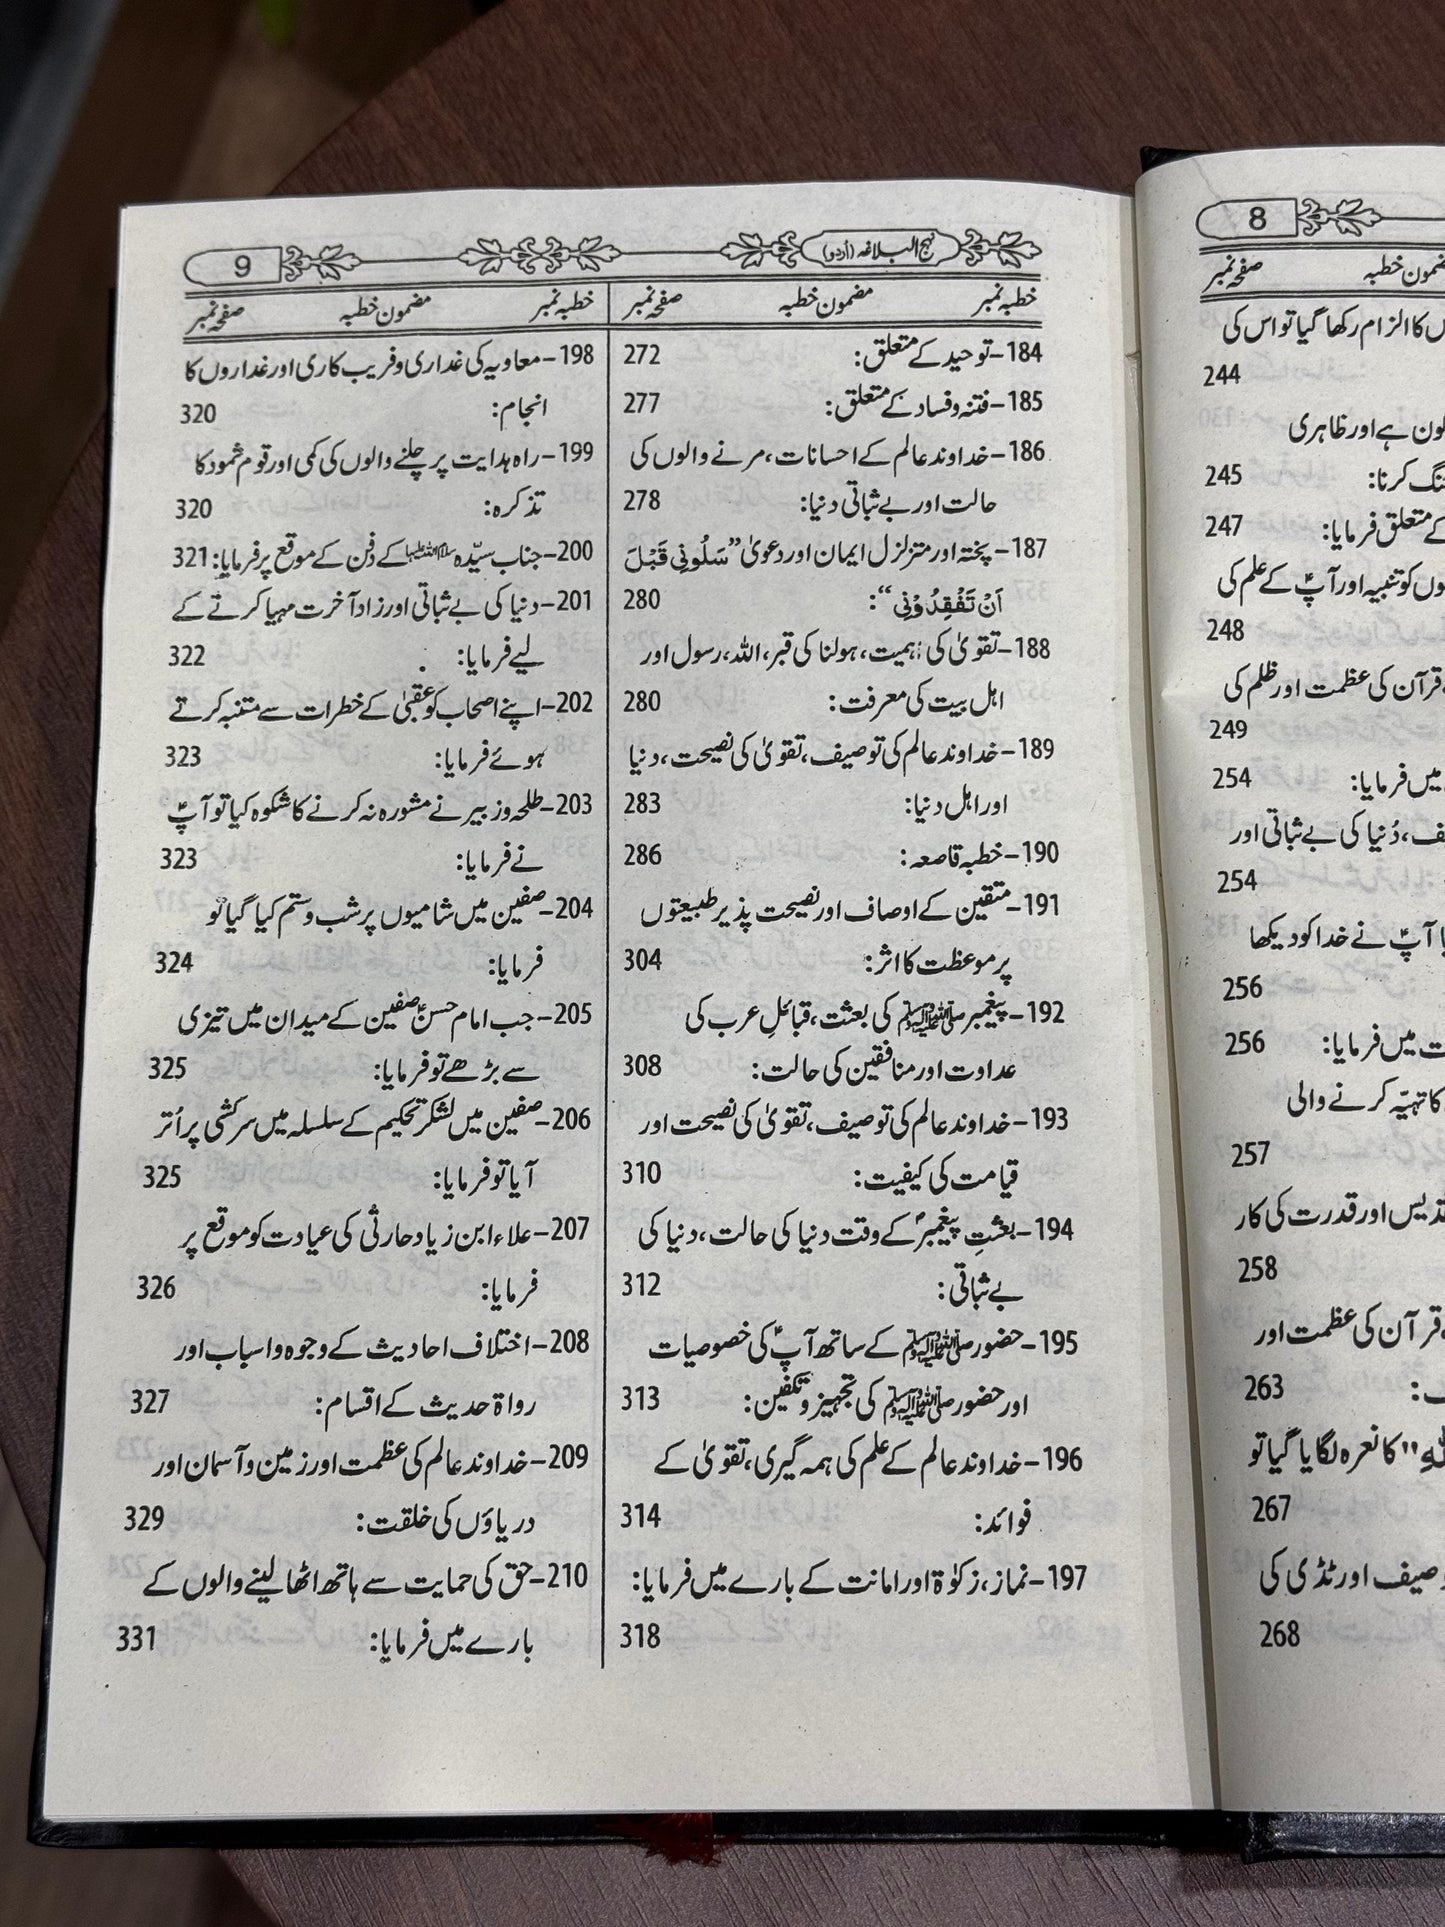 نہج البلاغہ (اُردو)
9
خطبہ نمبر مضمون خطبہ صفحہ نمبر
184–توحید کے متعلق: 272
185–فتنہ و فساد کے متعلق: 277
186–خداوند عالم کے احسانات، مرنے والوں کی
حالت اور بے ثباتی دنیا: 278
187–پختہ اور متزلزل ایمان اور دعویٰ ”سَلُونِی قَبْلَ
اَنْ تَفْقِدُوْنِی“: 280
188–تقویٰ کی اہمیت، ہولناکی قبر، اللہ، رسول اور
اہل بیت کی معرفت: 280
189–خداوند عالم کی توصیف، تقویٰ کی نصیحت، دنیا
اور اہل دنیا: 283
190–خطبہ قاصعہ: 286
191–متقین کے اوصاف اور نصیحت پذیر طبیعتوں
پر موعظت کا اثر: 304
192–پیغمبر ﷺ کی بعثت، قبائلِ عرب کی
عداوت اور منافقین کی حالت: 308
193–خداوند عالم کی توصیف، تقویٰ کی نصیحت اور
قیامت کی کیفیت: 310
194–بعثتِ پیغمبرؐ کے وقت دنیا کی حالت، دنیا کی
بے ثباتی: 312
195–حضور ﷺ کے ساتھ آپؑ کی خصوصیات
اور حضور ﷺ کی تجہیز و تکفین: 313
196–خداوند عالم کے علم کی ہمہ گیری، تقویٰ کے
فوائد: 314
197–نماز، زکوٰۃ اور امانت کے بارے میں فرمایا:
318
خطبہ نمبر مضمون خطبہ صفحہ نمبر
198–معاویہ کی غداری و فریب کاری اور غداروں کا
انجام: 320
199–راہ ہدایت پر چلنے والوں کی کمی اور قوم ثمود کا
تذکرہ: 320
200–جناب سیّدہ سلام اللہ علیہا کے دفن کے موقع پر فرمایا: 321
201–دنیا کی بے ثباتی اور زاد آخرت مہیا کرتے کے
لیے فرمایا: 322
202–اپنے اصحاب کو عقبیٰ کے خطرات سے متنبہ کرتے
ہوئے فرمایا: 323
203–طلحہ و زبیر نے مشورہ نہ کرنے کا شکوہ کیا تو آپؑ
نے فرمایا: 323
204–صفین میں شامیوں پر شب و ستم کیا گیا تو
فرمایا: 324
205–جب امام حسنؑ صفین کے میدان میں تیزی
سے بڑھے تو فرمایا: 325
206–صفین میں لشکر تحکیم کے سلسلہ میں سرکشی پر اُتر
آیا تو فرمایا: 325
207–علاء ابن زیاد حارثی کی عیادت کو موقع پر
فرمایا: 326
208–اختلاف احادیث کے وجوہ و اسباب اور
رواۃ حدیث کے اقسام: 327
209–خداوند عالم کی عظمت اور زمین و آسمان اور
دریاؤں کی خلقت: 329
210–حق کی حمایت سے ہاتھ اٹھا لینے والوں کے
بارے میں فرمایا: 331
8
خطبہ صفحہ نمبر
کا الزام رکھا گیا تو اس کی
244
ہے اور ظاہری
کرنا: 245
کے متعلق فرمایا: 247
کو تنبیہ اور آپؑ کے علم کی
248
قرآن کی عظمت اور ظلم کی
249
میں فرمایا: 254
دُنیا کی بے ثباتی اور
254
آپؑ نے خدا کو دیکھا
256
میں فرمایا: 256
کا تہیّہ کرنے والی
257
اور قدرت کی کار
258
قرآن کی عظمت اور
263
کا نعرہ لگایا گیا تو
267
اور ٹڈی کی
268